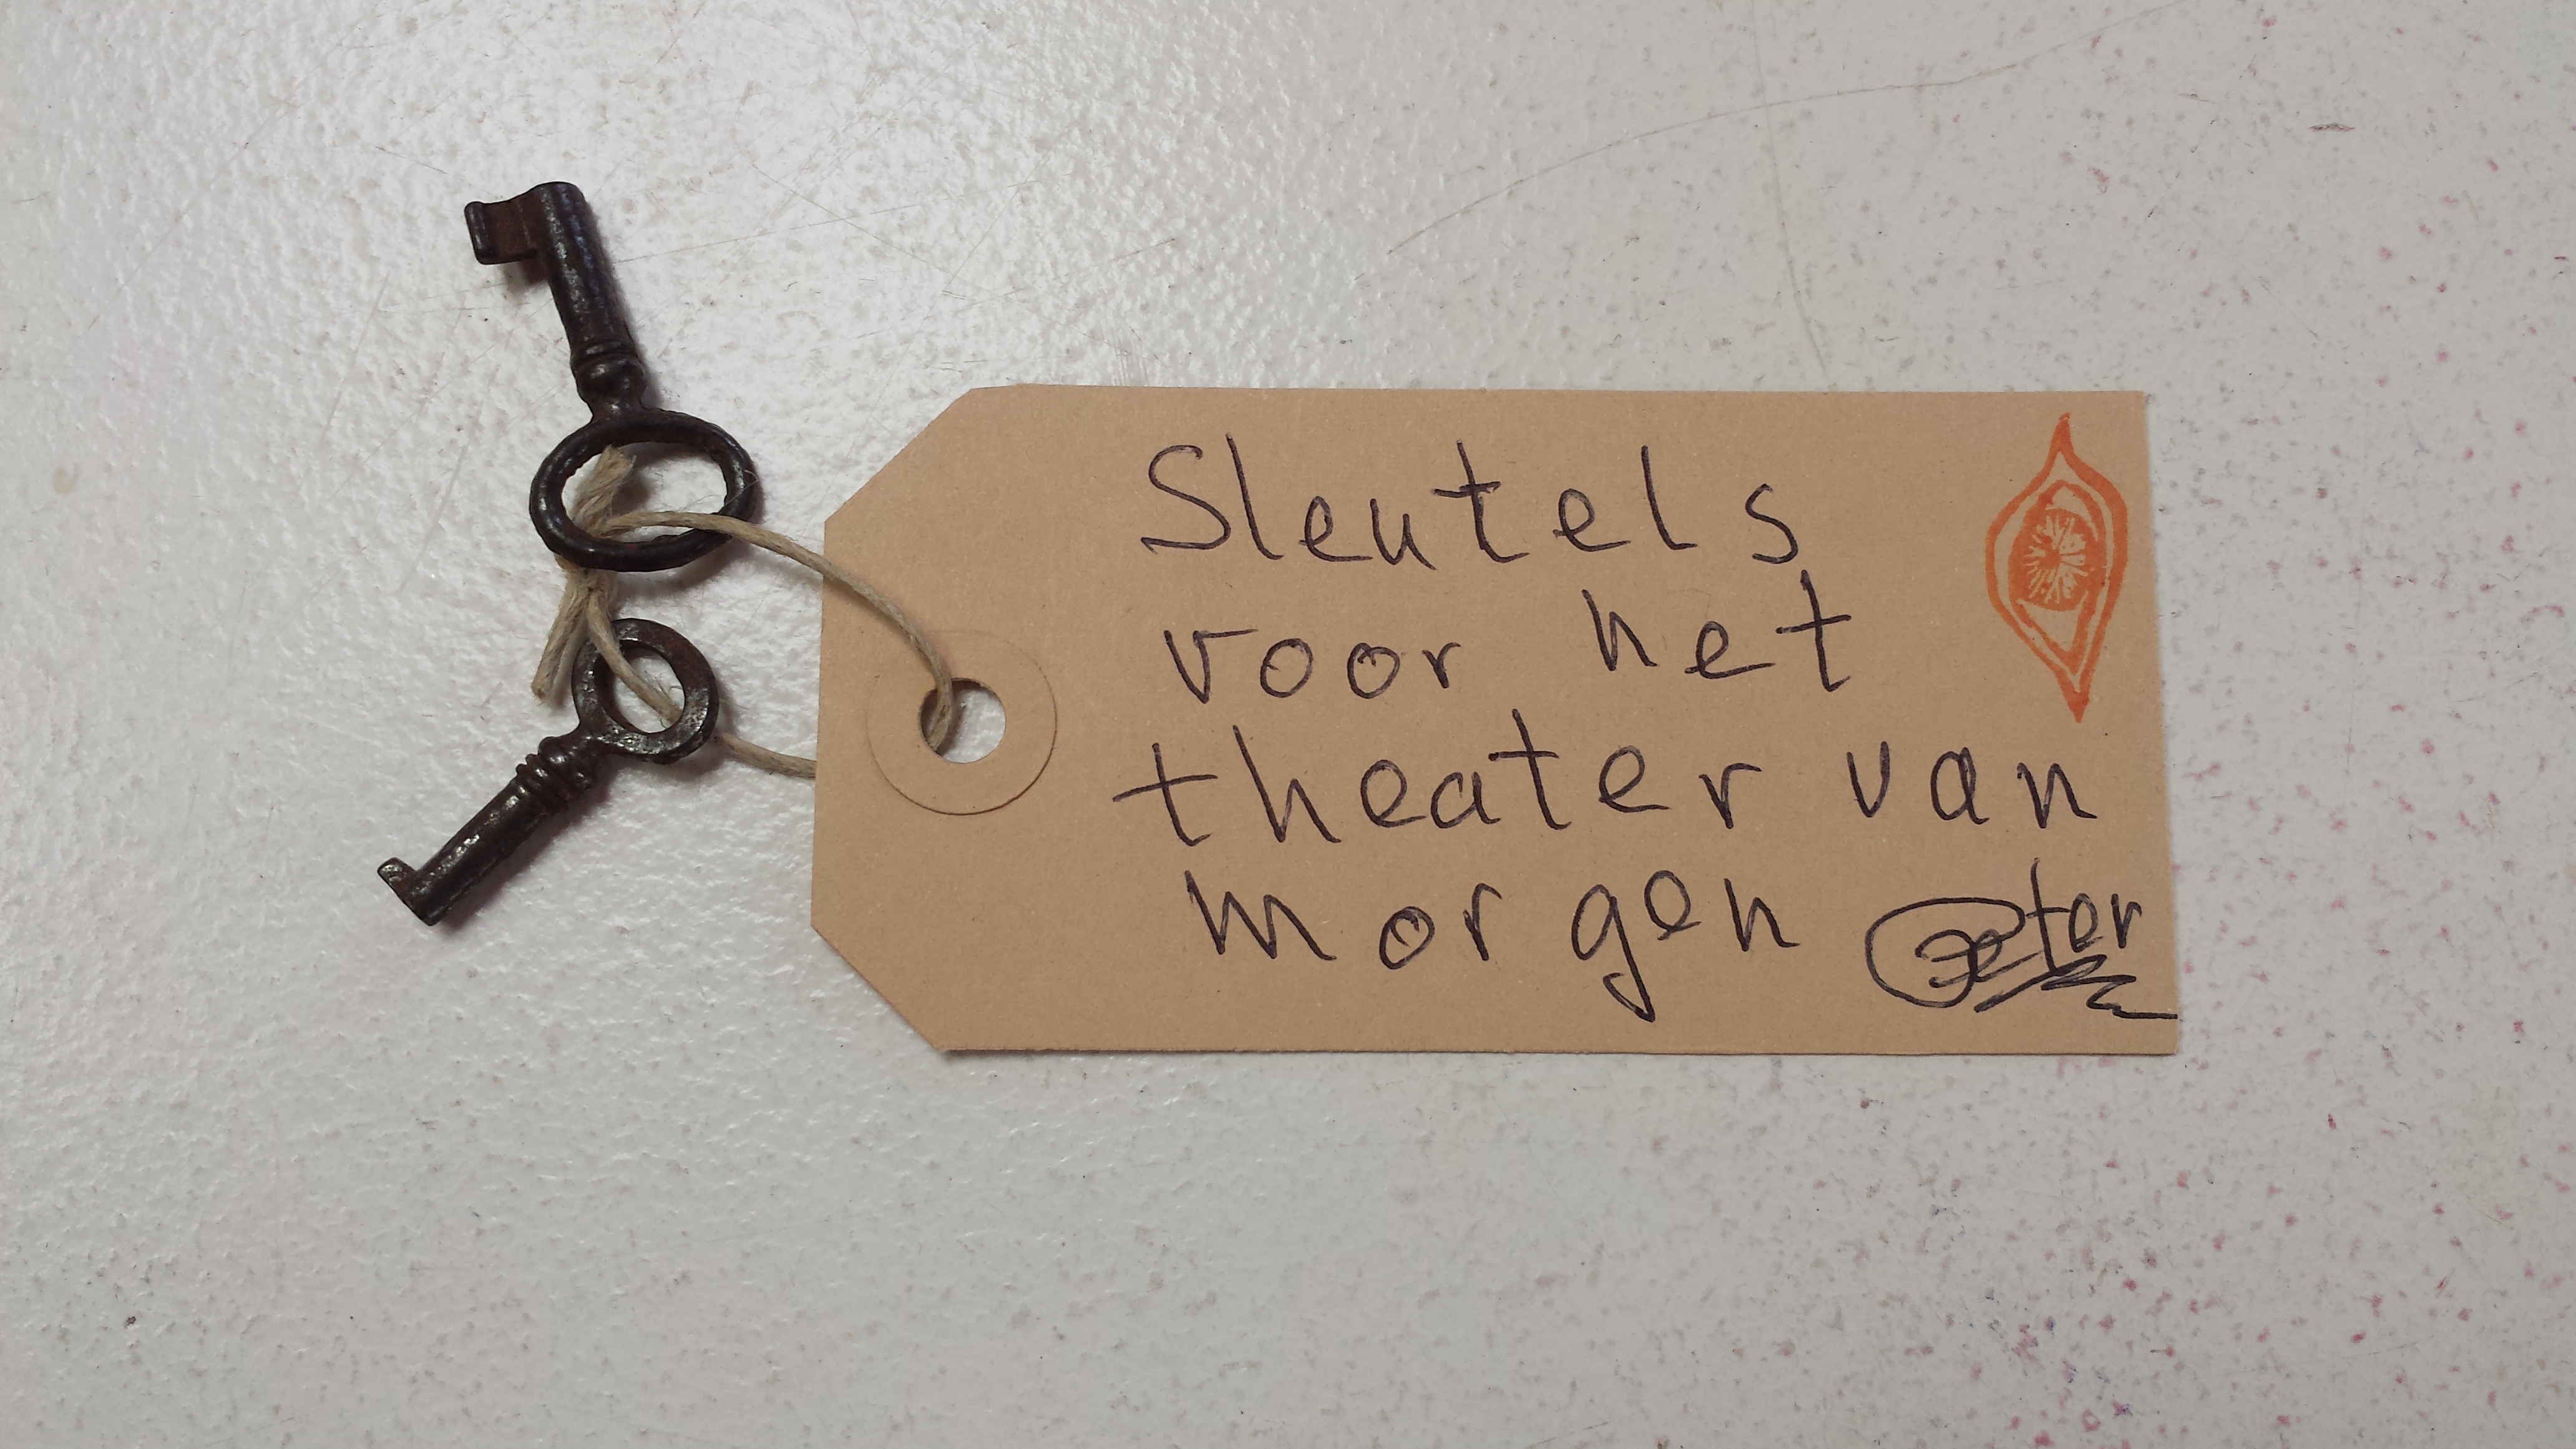 Sleutels
voor het
theater van
morgen Peter